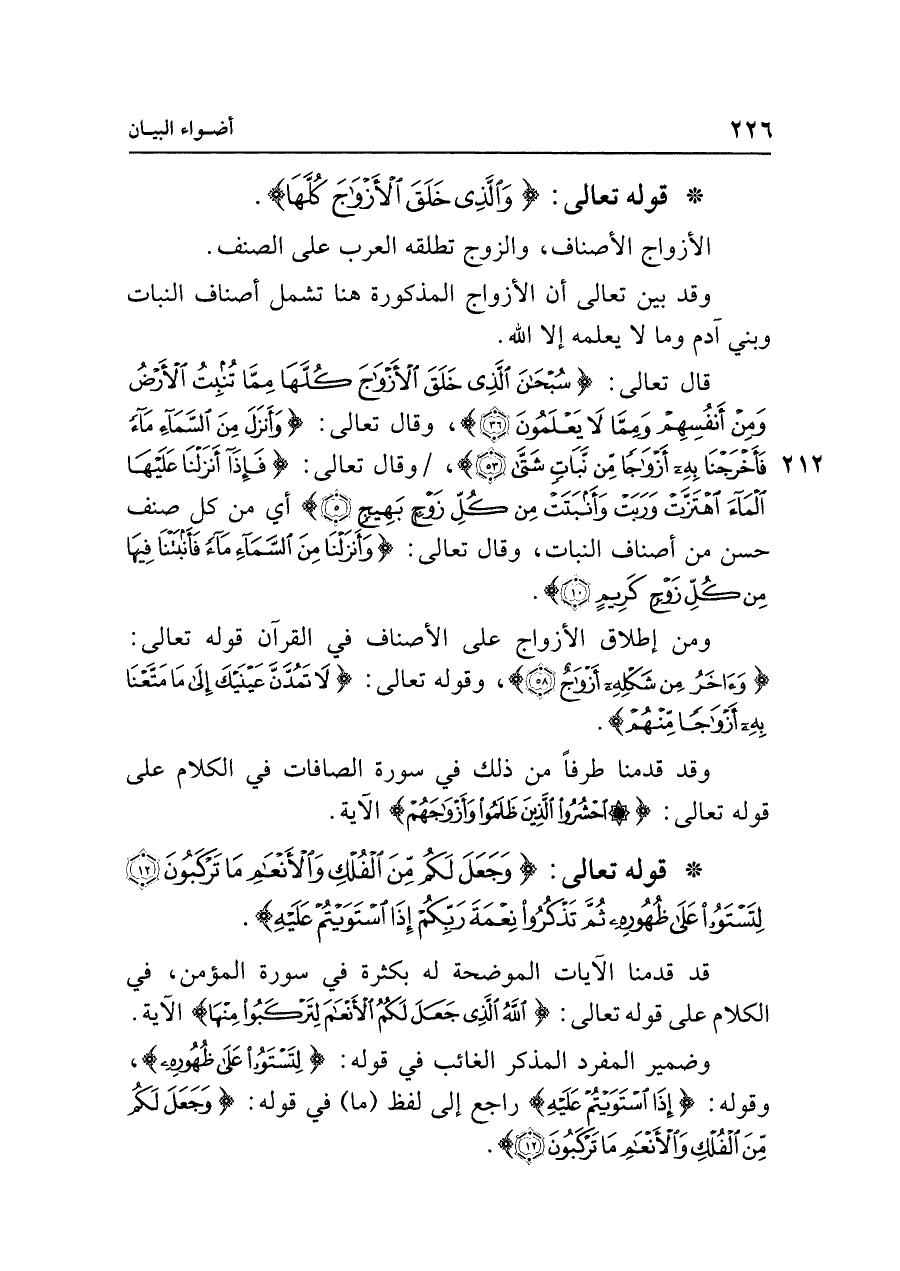 ٢٢٦ أضواء البيان
* قوله تعالى: ﴿ وَٱلَّذِى خَلَقَ ٱلْأَزْوَٰجَ كُلَّهَا﴾ .
الأزواج الأصناف، والزوج تطلقه العرب على الصنف .
وقد بين تعالى أن الأزواج المذكورة هنا تشمل أصناف النبات
وبني آدم وما لا يعلمه إلا الله .
قال تعالى: ﴿ سُبْحَٰنَ ٱلَّذِى خَلَقَ ٱلْأَزْوَٰجَ كُلَّهَا مِمَّا تُنۢبِتُ ٱلْأَرْضُ
وَمِنْ أَنفُسِهِمْ وَمِمَّا لَا يَعْلَمُونَ ٣٦﴾، وقال تعالى: ﴿ وَأَنزَلَ مِنَ ٱلسَّمَآءِ مَآءً
فَأَخْرَجْنَا بِهِۦٓ أَزْوَٰجًا مِّن نَّبَاتٍ شَتَّىٰ ٥٣﴾، /وقال تعالى: ﴿ فَإِذَآ أَنزَلْنَا عَلَيْهَا ٢١٢
ٱلْمَآءَ ٱهْتَزَّتْ وَرَبَتْ وَأَنۢبَتَتْ مِن كُلِّ زَوْجٍۭ بَهِيجٍ ٥﴾ أي من كل صنف
حسن من أصناف النبات، وقال تعالى: ﴿ وَأَنزَلْنَا مِنَ ٱلسَّمَآءِ مَآءً فَأَنۢبَتْنَا فِيهَا
مِن كُلِّ زَوْجٍ كَرِيمٍ ١٠﴾ .
ومن إطلاق الأزواج على الأصناف في القرآن قوله تعالى:
﴿ وَءَاخَرُ مِن شَكْلِهِۦٓ أَزْوَٰجٌ ٥٨﴾، وقوله تعالى: ﴿ لَا تَمُدَّنَّ عَيْنَيْكَ إِلَىٰ مَا مَتَّعْنَا
بِهِۦٓ أَزْوَٰجًا مِّنْهُمْ﴾ .
وقد قدمنا طرفاً من ذلك في سورة الصافات في الكلام على
قوله تعالى: ﴿ ۞ ٱحْشُرُوا۟ ٱلَّذِينَ ظَلَمُوا۟ وَأَزْوَٰجَهُمْ﴾ الآية .
* قوله تعالى: ﴿ وَجَعَلَ لَكُم مِّنَ ٱلْفُلْكِ وَٱلْأَنْعَٰمِ مَا تَرْكَبُونَ ١٢
لِتَسْتَوُۥا۟ عَلَىٰ ظُهُورِهِۦ ثُمَّ تَذْكُرُوا۟ نِعْمَةَ رَبِّكُمْ إِذَا ٱسْتَوَيْتُمْ عَلَيْهِ﴾ .
قد قدمنا الآيات الموضحة له بكثرة في سورة المؤمن، في
الكلام على قوله تعالى: ﴿ ٱللَّهُ ٱلَّذِى جَعَلَ لَكُمُ ٱلْأَنْعَٰمَ لِتَرْكَبُوا۟ مِنْهَا﴾ الآية .
وضمير المفرد المذكر الغائب في قوله: ﴿ لِتَسْتَوُۥا۟ عَلَىٰ ظُهُورِهِۦ﴾،
وقوله: ﴿ إِذَا ٱسْتَوَيْتُمْ عَلَيْهِ﴾ راجع إلى لفظ (ما) في قوله: ﴿ وَجَعَلَ لَكُم
مِّنَ ٱلْفُلْكِ وَٱلْأَنْعَٰمِ مَا تَرْكَبُونَ ١٢﴾ .